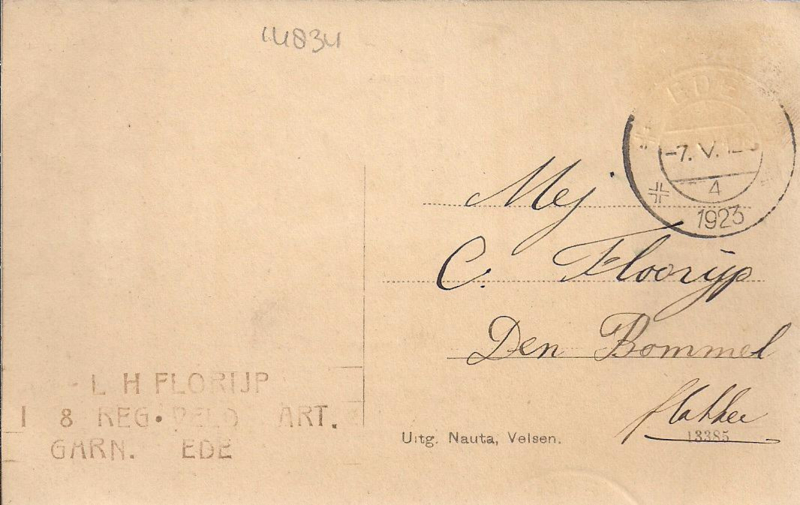 14834
-7. V. 12
4
1923
Mej
C. Floorijp
Den Bommel
flakkee
L H FLORIJP
I 8 REG. VELD ART.
GARN. EDE
Uitg. Nauta, Velsen.
13385